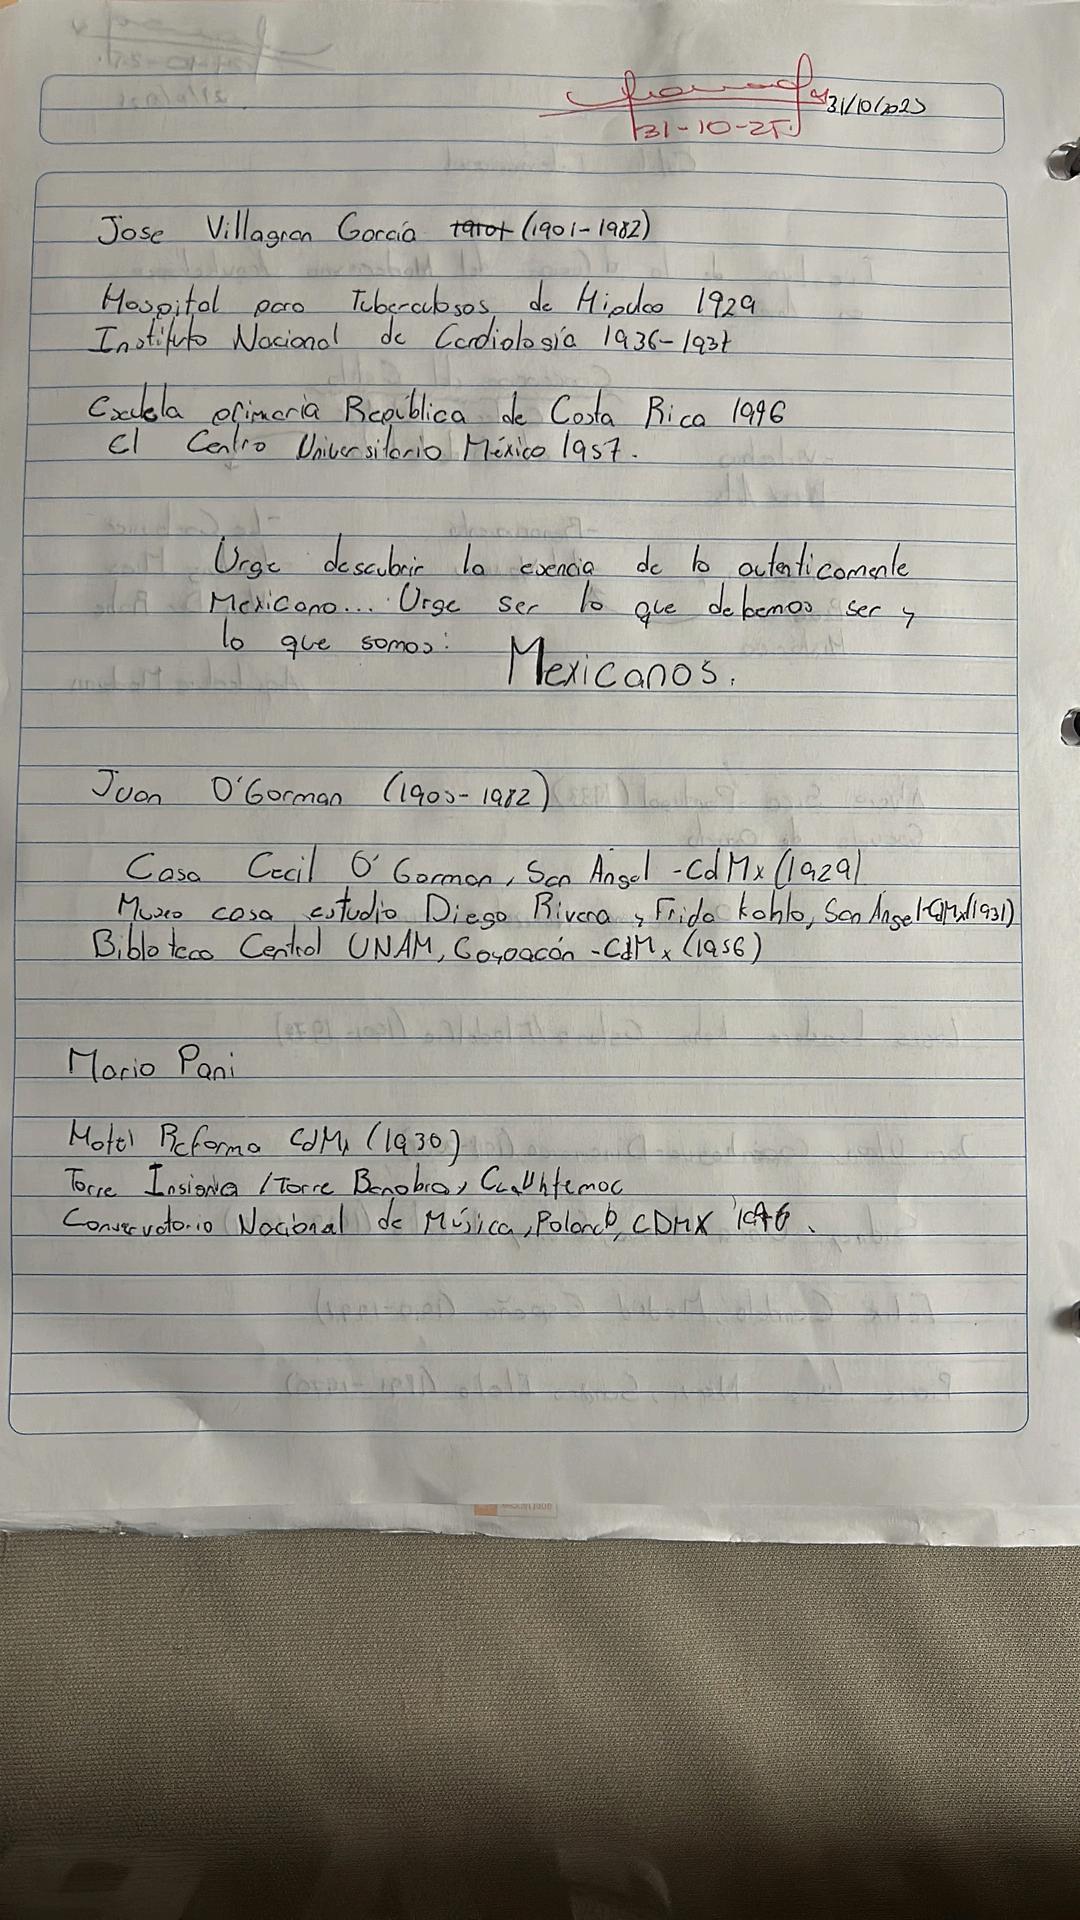 31/10/2025
31-10-25
Jose Villagran García (1901-1982)
Hospital para Tuberculosos de Hipulco 1929
Instituto Nacional de Cardiología 1936-1937
Escuela primaria República de Costa Rica 1946
El Centro Universitario México 1957.
Urge descubrir la esencia de lo autenticamente
Mexicano... Urge ser lo que debemos ser y
lo que somos:
Mexicanos.
Juan O'Gorman (1905-1982)
Casa Cecil O'Gorman, San Ángel -CdMx (1929)
Museo casa estudio Diego Rivera y Frida Kahlo, San Ángel-CdMx(1931)
Biblioteca Central UNAM, Coyoacán -CdMx (1956)
Mario Pani
Hotel Reforma CdMx (1936)
Torre Insignia /Torre Banobras, Cuauhtemoc
Conservatorio Nacional de Música, Polanco, CDMX 1946.